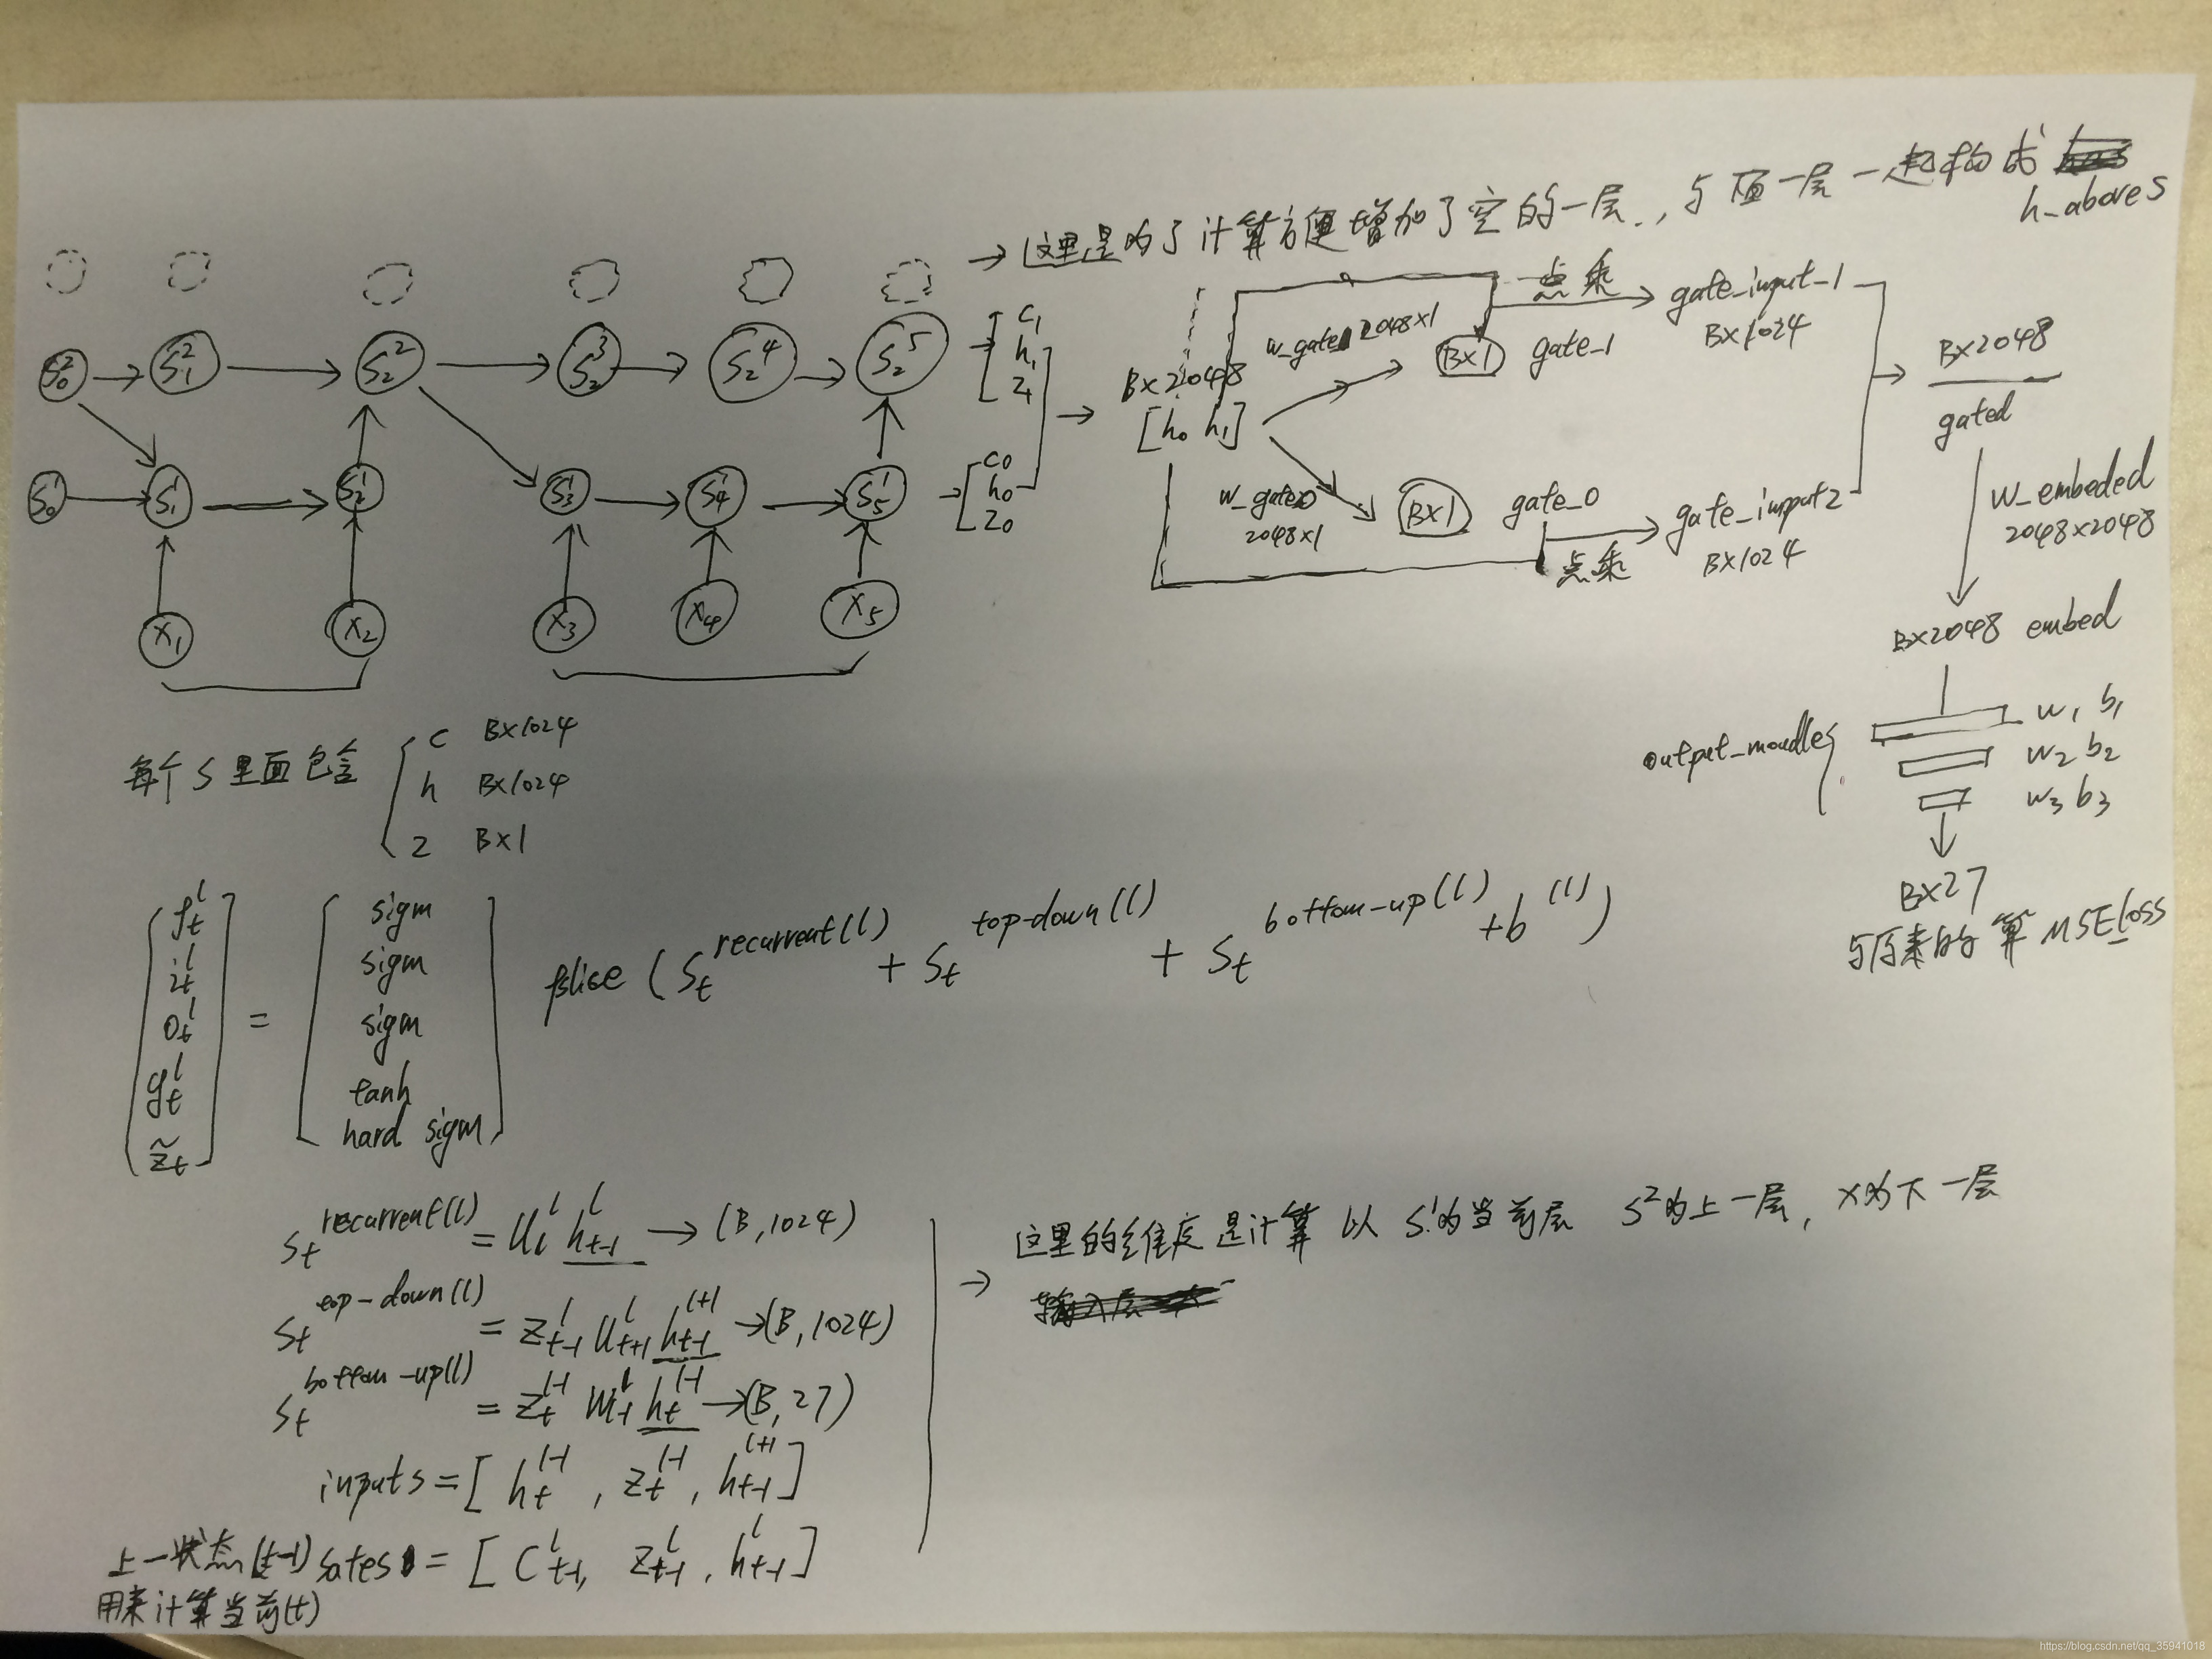 → 这里是为了计算方便增加了空的一层.，与顶一层一起构成
h_aboves
S₀² → S₁² → S₂² → S₂³ → S₂⁴ → S₂⁵
C₁
h₁
Z₁
S₀¹ → S₁¹ → S₂¹ S₃¹ → S₄¹ → S₅¹
C₀
h₀
Z₀
X₁ X₂ X₃ X₄ X₅
B×2048
[h₀ h₁]
w_gate1 2048×1
B×1 gate_1
点乘
gate_input_1
B×1024
w_gate0
2048×1
B×1 gate_0
点乘
gate_input2
B×1024
B×2048
gated
W_embeded
2048×2048
B×2048 embed
output_moudles
w₁ b₁
w₂ b₂
w₃ b₃
B×27
与原来的算MSEloss
每个S里面包含
C B×1024
h B×1024
Z B×1
f_t^l
i_t^l
o_t^l
g_t^l
z̃_t
=
sigm
sigm
sigm
tanh
hard sigm
fslice (S_t^recurrent(l) + S_t^top-down(l) + S_t^bottom-up(l) + b^(l))
S_t^recurrent(l) = U_l^l h_{t-1}^l → (B,1024)
S_t^top-down(l) = Z_{t-1}^l U_{t+1}^l h_{t-1}^{l+1} → (B,1024)
S_t^bottom-up(l) = Z_t^{l-1} W_{t-1}^l h_t^{l-1} → (B,27)
inputs = [h_t^{l-1}, Z_t^{l-1}, h_{t-1}^{l+1}]
上一状态(t-1) sates = [C_{t-1}^l, Z_{t-1}^l, h_{t-1}^l]
用来计算当前(t)
→ 这里的维度是计算 以S¹为当前层 S²为上一层，X为下一层
https://blog.csdn.net/qq_35941018